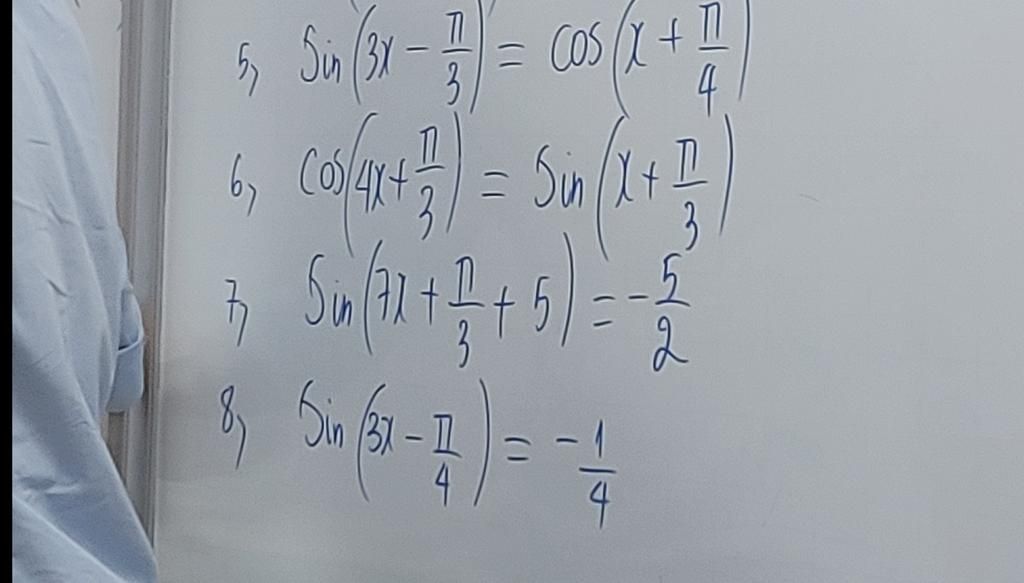 5, Sin(3x - π/3) = cos(x + π/4)
6, cos(4x + π/3) = Sin(x + π/3)
7, Sin(7x + π/3 + 5) = -5/2
8, Sin(3x - π/4) = -1/4